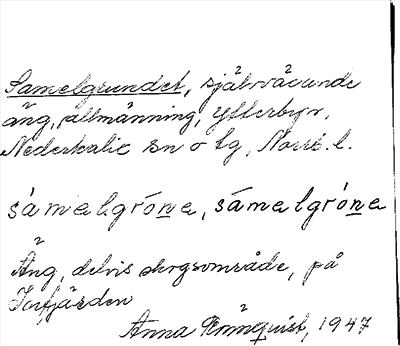 Samelgrundet, självrävande
äng, allmänning, Ytterbyn,
Nederkalix sn o tg, Norrb. l.
sámelgró̱ne, sámelgró̱ne
Äng, delvis skogsområde, på
Torfjärden
Anna Rönnquist, 1947